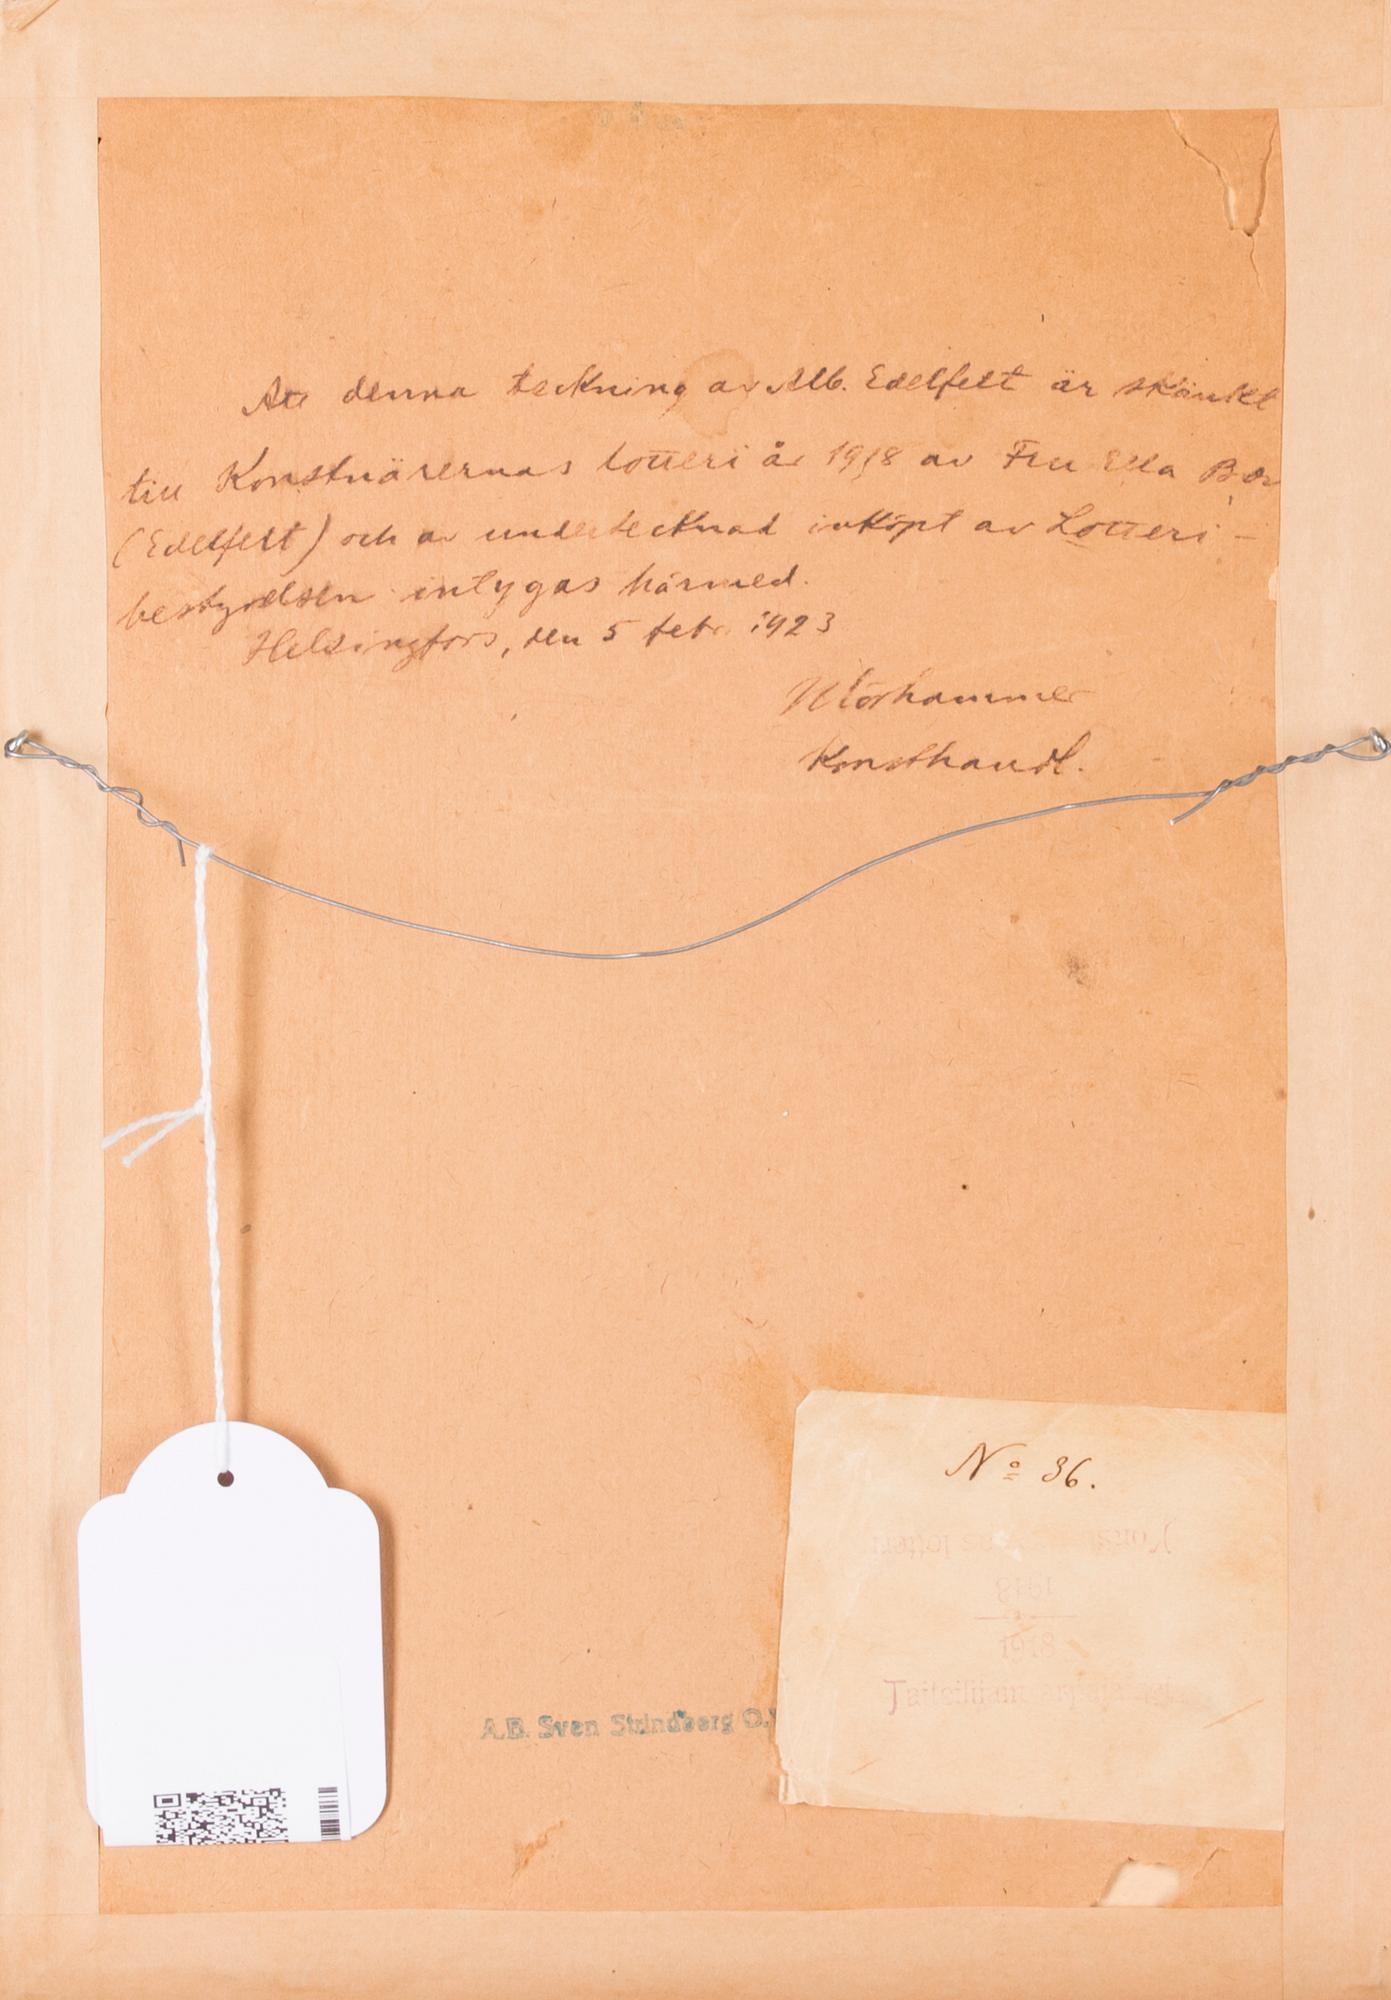 Att denna teckning av Alb. Edelfelt är skänkt
till Konstnärernas lotteri år 1918 av Fru Ella
(Edelfelt) och av undertecknad inköpt av Lotteri-
bestyrelsen intygas härmed.
Helsingfors, den 5 febr. 1923
Konsthandl.
No 36.
lotteri
1918
1918
A.B. Sven Strindberg O.Y